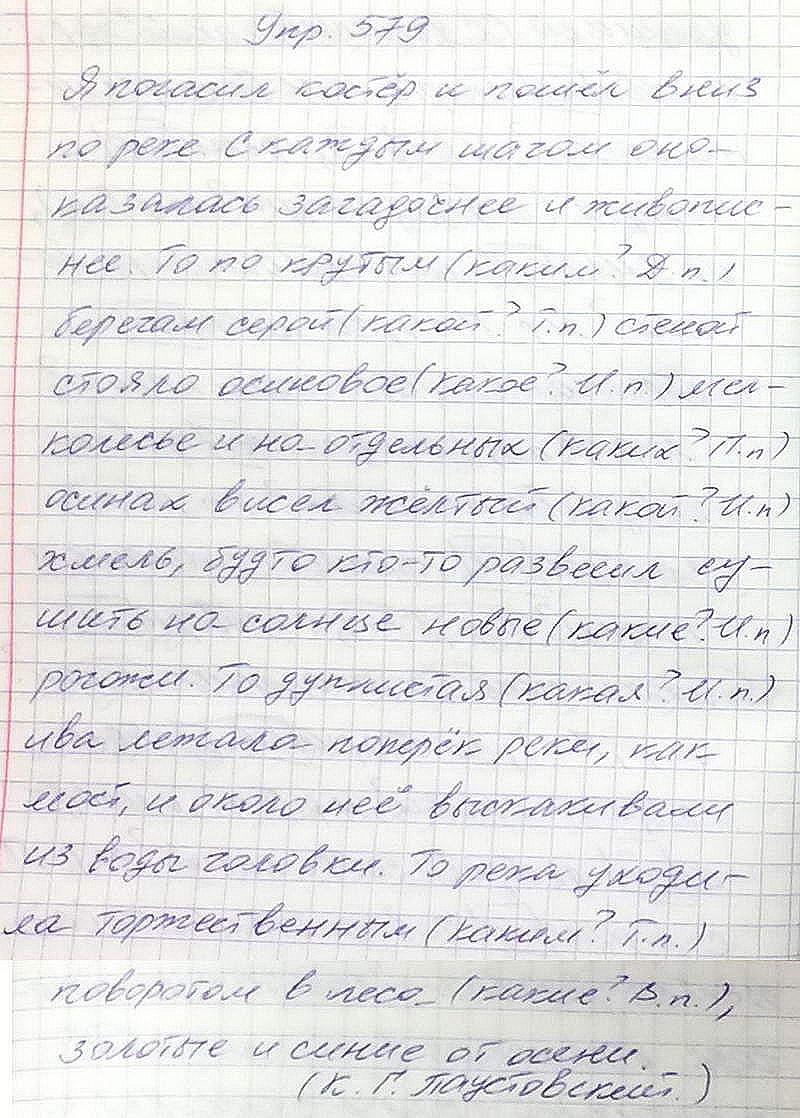 Упр. 579
Я погасил костёр и пошёл вниз
по реке. С каждым шагом она
казалась загадочнее и живопис-
нее. То по крутым (каким? Д.п.)
берегам серой (какой? Т.п.) стеной
стояло осиновое (какое? И.п.) мел-
колесье и на отдельных (каких? П.п)
осинах висел жёлтый (какой? И.п)
хмель, будто кто-то развесил су-
шить на солнце новые (какие? И.п)
рогожи. То дуплистая (какая? И.п.)
ива лежала поперёк реки, как
мост, и около неё выскакивали
из воды головки. То река уходи-
ла торжественным (каким? Т.п.)
поворотом в леса (какие? В.п.),
золотые и синие от осени.
(К. Г. Паустовский.)